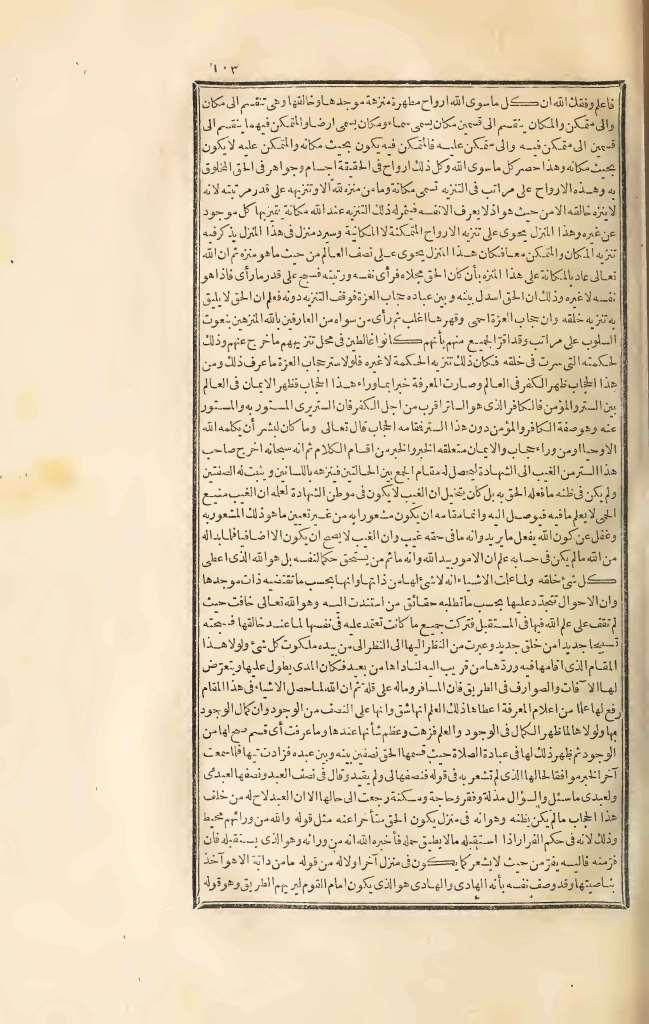 ١٠٣
فاعلم وفقك الله ان كل ما سوى الله ارواح مطهرة منزهة موجدها وخالقها وهي تنقسم الى مكان
والى متمكن والمكان ينقسم الى قسمين مكان يسمى سماء ومكان يسمى ارضا والمتمكن فيهما ينقسم الى
قسمين الى متمكن فيه والى متمكن عليه فالمتمكن فيه يكون بحيث مكانه والمتمكن عليه لا يكون
بحيث مكانه وهذا حصر كل ما سوى الله وكل ذلك ارواح في الحقيقة اجسام وجواهر في الحق المخلوق
به وهذه الارواح على مراتب في التنزيه تسمى مكانة وما من منزه لله الا وتنزيهه على قدر مرتبته لانه
لا ينزه خالقه الا من حيث هو اذ لا يعرف الا نفسه فيثمر له ذلك التنزيه عند الله مكانة يتميز بها كل موجود
عن غيره وهذا المنزل يحوى على تنزيه الارواح المتمكنة لا المكانية وسيرد منزل في هذا المنزل يذكر فيه
تنزيه المكان والمتمكن معا فكان هذا المنزل يحوى على نصف العالم من حيث ما هو منزه ثم ان الله
تعالى عاد بالمكانة على هذا المنزه بأن كان الحق مجلاه فرأى نفسه ورتبته فسبح على قدر ما رأى فاذا هو
نفسه لا غيره وذلك ان الحق اسدل بينه وبين عباده حجاب العزة فوقف التنزيه دونه فعلم ان الحق لا يليق
به تنزيه خلقه وان حجاب العزة احمى وقهرها اغلب ثم رأى من سواه من العارفين بالله المنزهين بنعوت
السلوب على مراتب وقد اقر الجميع منهم بأنهم كانوا غالطين في محل تنزيههم ما خرج عنهم وذلك
لحكمته التي سرت في خلقه فكان ذلك تنزيه الحكمة لا غيره فلولا ستر حجاب العزة ما عرف ذلك ومن
هذا الحجاب ظهر الكفر في العالم وصارت المعرفة خبرا بما وراء هذا الحجاب فظهر الايمان في العالم
بين الستر والمؤمن فالكافر الذي هو الساتر اقرب من اجل الكفر فان الستر يرى المستور به والمستور
عنه وهو صفة الكافر والمؤمن دون هذا الستر فقامه الحجاب قال تعالى وما كان لبشر أن يكلمه الله
الا وحيا او من وراء حجاب والايمان متعلقه الخبر والخبر من اقسام الكلام ثم انه سبحانه اخرج صاحب
هذا الستر من الغيب الى الشهادة ليحصل له مقام الجمع بين الحالتين فينزهه باللسانين ويثبت له الصفتين
ولم يكن في ظنه ما فعله الحق به بل كان يتخيل ان الغيب لا يكون في موطن الشهادة لعلمه ان الغيب منيع
الحمى لا يعلم ما فيه فيوصل اليه وانما مقامه ان يكون مشعورا به من غير تعيين ما هو ذلك المشعور به
وغفل عن كون الله يفعل ما يريد وانه ما في حقه غيب وان الغيب لا يصح ان يكون الا اضافيا فلما بدا له
من الله ما لم يكن في حسابه علم ان الامور بيد الله وانه ما ثم من يستحق حكما لنفسه بل هو الله الذي اعطى
كل شئ خلقه ولما عاينت الاشياء انه لا شئ لها من ذاتها وانها بحسب ما تقتضيه ذات موجدها
وان الاحوال تتجدد عليها بحسب ما تطلبه حقائق من استندت اليه وهو الله تعالى خافت حيث
لم تقف على علم الله فيها في المستقبل فتركت جميع ما كانت تعتمد عليه في نفسها لما عند خالقها فسبحته
تسبيحا جديدا من خلق جديد وعبرت من النظر اليها الى النظر الى من بيده ملكوت كل شئ ولولا هذا
المقام الذي اقامها فيه وردها من قريب اليه لناداها من بعيد فكان المدى يطول عليها ويتعرض
لها الآفات والصوارف في الطريق فان المسافر وماله على قلة ثم ان الله لما حصل الاشياء في هذا المقام
رفع لها علما من اعلام المعرفة اعطاها ذلك العلم انها شق وانها على النصف من الوجود وان كمال الوجود
بها ولولاها ما ظهر الكمال في الوجود والعلم فزهت وعظم شأنها عندها وما عرفت أي قسم صح لها من
الوجود ثم ظهر ذلك لها في عبادة الصلاة حيث قسمها الحق نصفين بينه وبين عبده فزادت تيها فلما سمعت
آخر الخبر موافقا لحالها الذي لم تشعر به في قوله فنصفها لي ولم يقيد وقال في نصف العبد ونصفها لعبدي
ولعبدي ما سئل والسؤال مذلة وفقر وحاجة ومسكنة رجعت الى حالها الا ان العبد لاح له من خلف
هذا الحجاب ما لم يكن يظنه وهو انه في منزل يكون الحق متأخرا عنه مثل قوله والله من ورائهم محيط
وذلك لانه في حكم الفرار اذا استقبله ما لا يطيق حمله فأخبره الله انه من ورائه وهو الذي يستقبله فان
فر منه فاليه يفر من حيث لا يشعر كما يكون في منزل آخر اولا له من قوله ما من دابة الا هو آخذ
بناصيتها وقد وصف نفسه بأنه الهادي والهادي هو الذي يكون امام القوم ليريهم الطريق وهو قوله